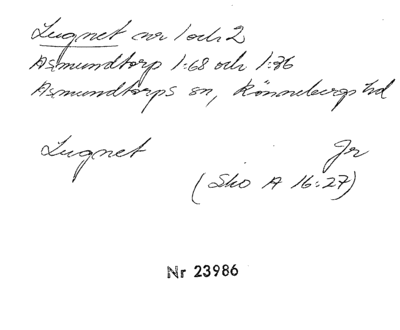 Lugnet nr 1 och 2
Asmundtorp 1:68 och 1:76
Asmundtorps sn, Rönnebergs hd
Lugnet Jr
(Sko A 16:27)
Nr 23986